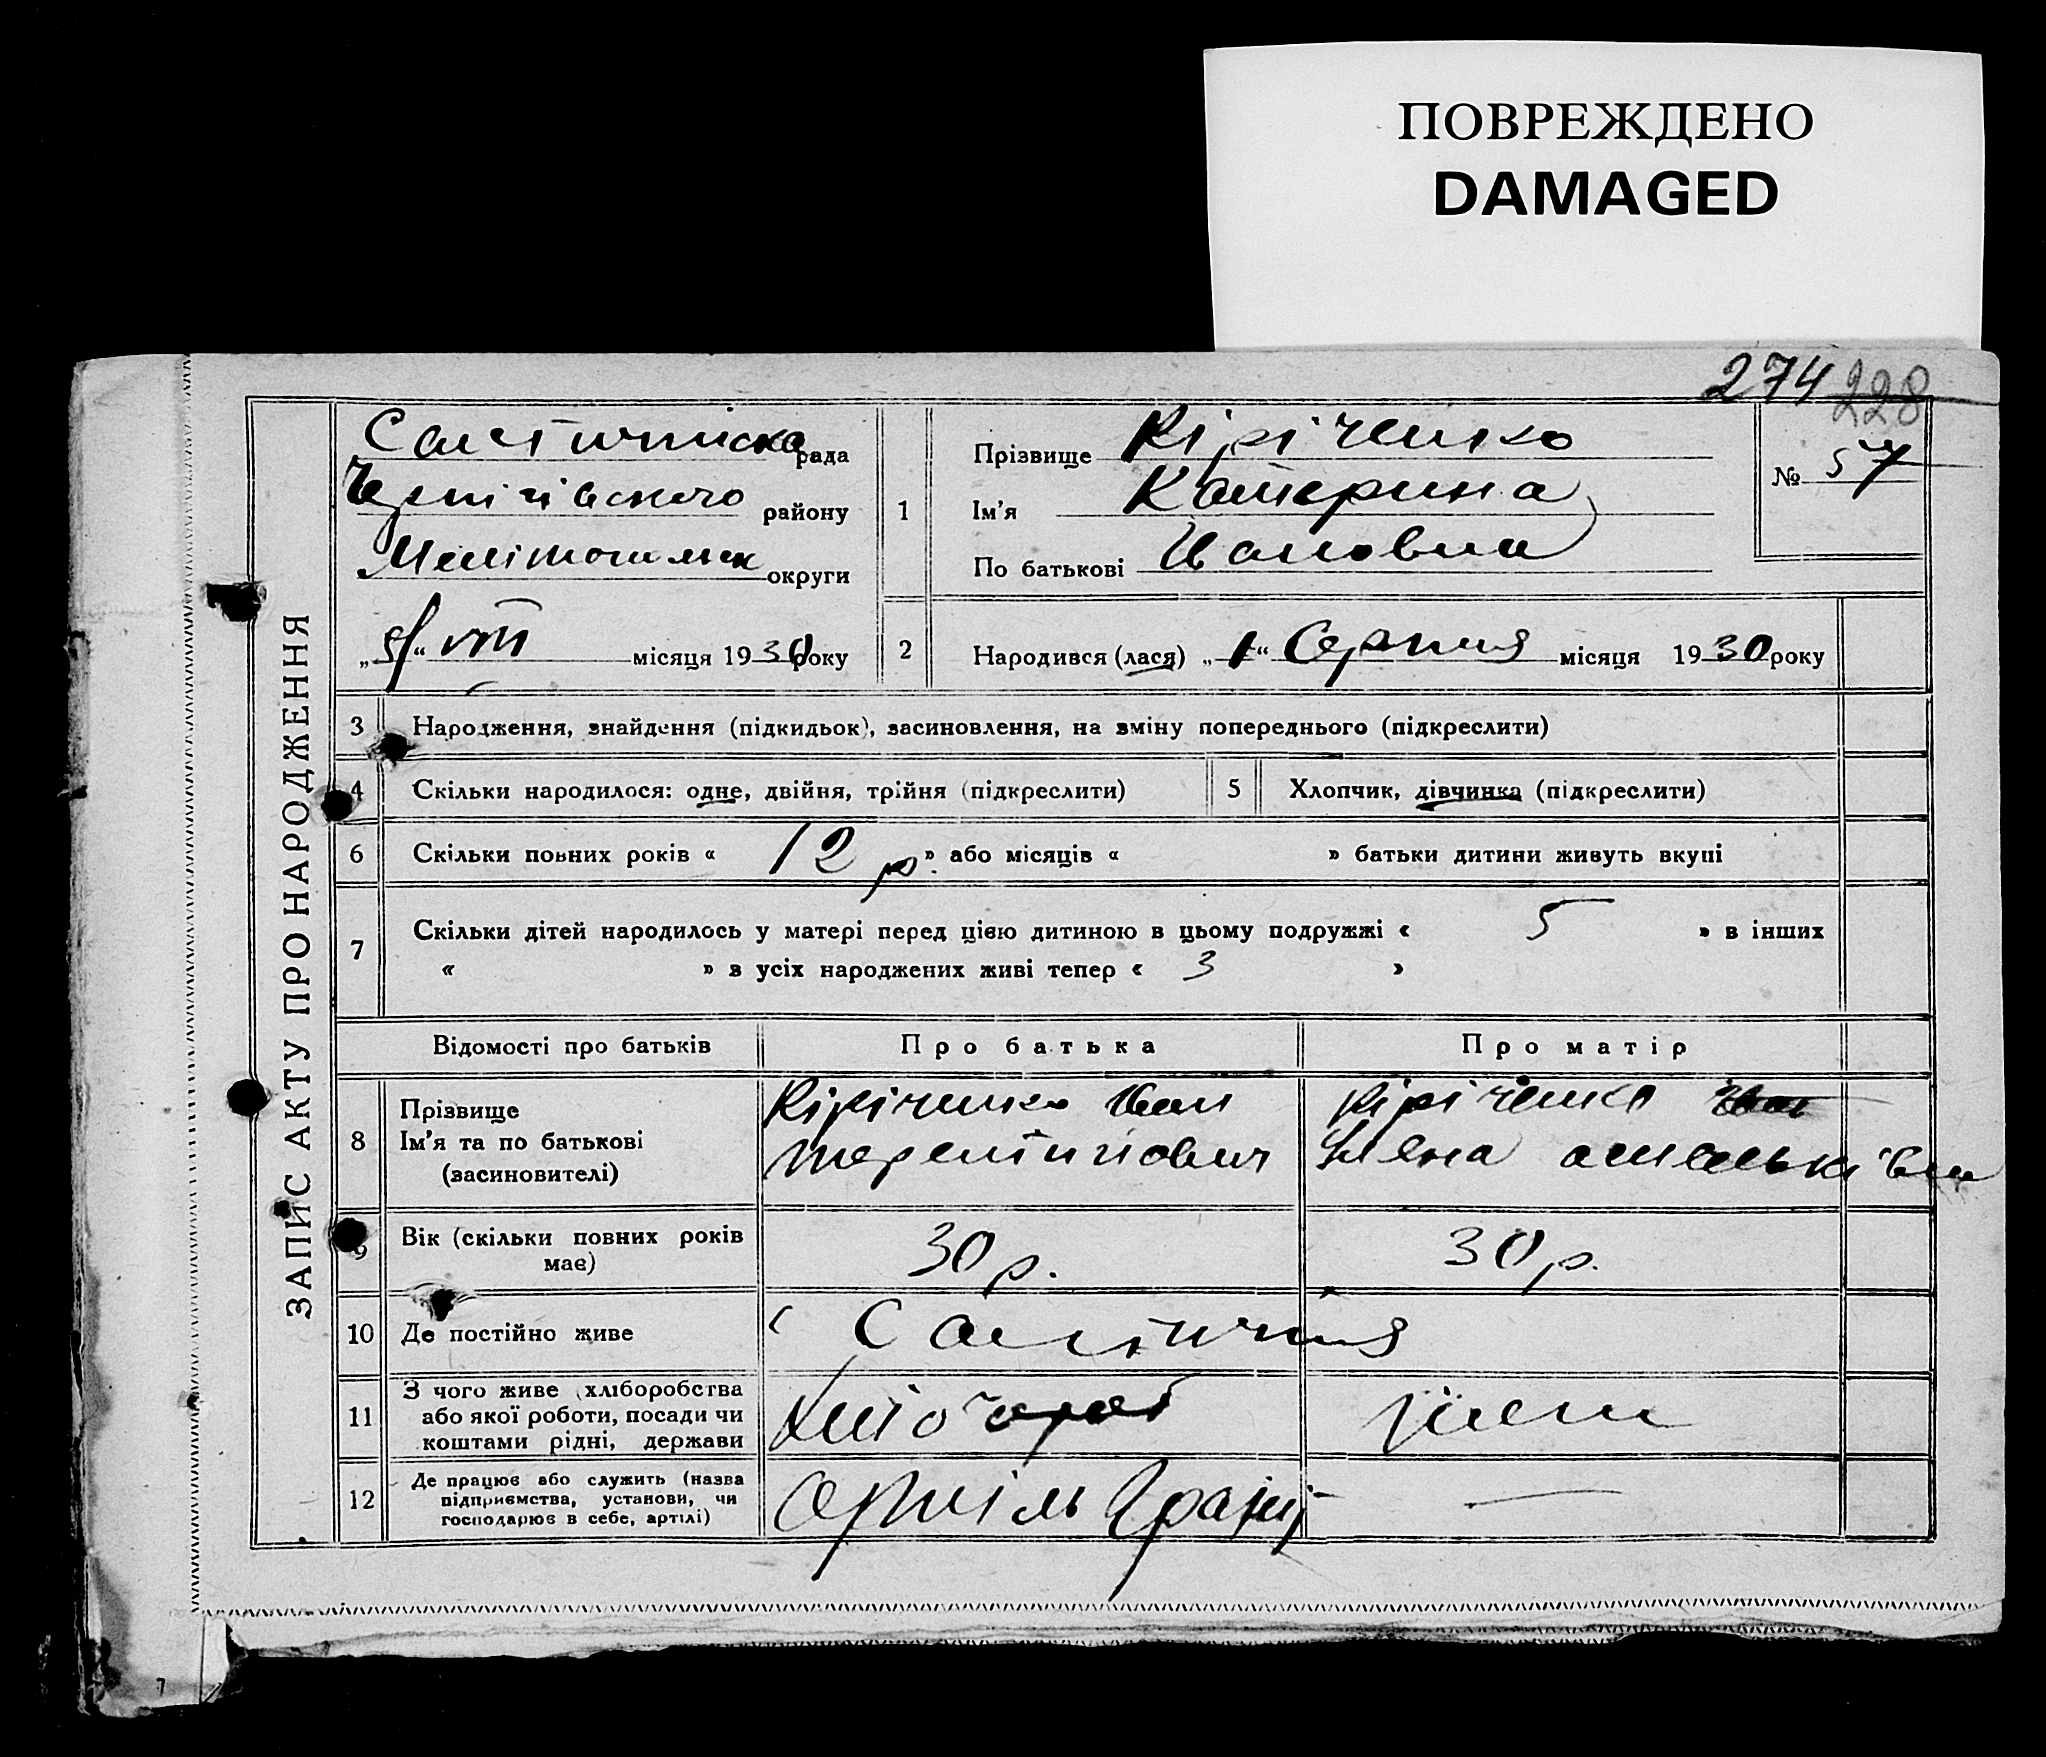 ПОВРЕЖДЕНО
DAMAGED
274 228
ЗАПИС АКТУ ПРО НАРОДЖЕННЯ
рада
Чернігівського району
Мелітопільськ округи
VIII місяця 1930 року
1
Прізвище Кіріченко
Ім'я Катерина
По батькові Івановна
№ 57
2 Народився (лася) „1“ Серпня місяця 1930 року
3 Народження, знайдення (підкидьок), засиновлення, на зміну попереднього (підкреслити)
4 Скільки народилося: одне, двійня, трійня (підкреслити)
5 Хлопчик, дівчинка (підкреслити)
6 Скільки повних років « 12 р. » або місяців « » батьки дитини живуть вкупі
7 Скільки дітей народилось у матері перед цією дитиною в цьому подружжі « 5 » в інших
« » з усіх народжених живі тепер « 3 »
Відомості про батьків
Про батька
Про матір
8
Прізвище
Ім'я та по батькові
(засиновителі)
Кіріченко Іван
Терентійович
Кіріченко
9
Вік (скільки повних років
має)
30 р.
30 р.
10 Де постійно живе
11
З чого живе (хліборобства
або якої роботи, посади чи
коштами рідні, держави
12
Де працює або служить (назва
підприємства, установи, чи
господарює в себе, артілі)
Артіль
—
7